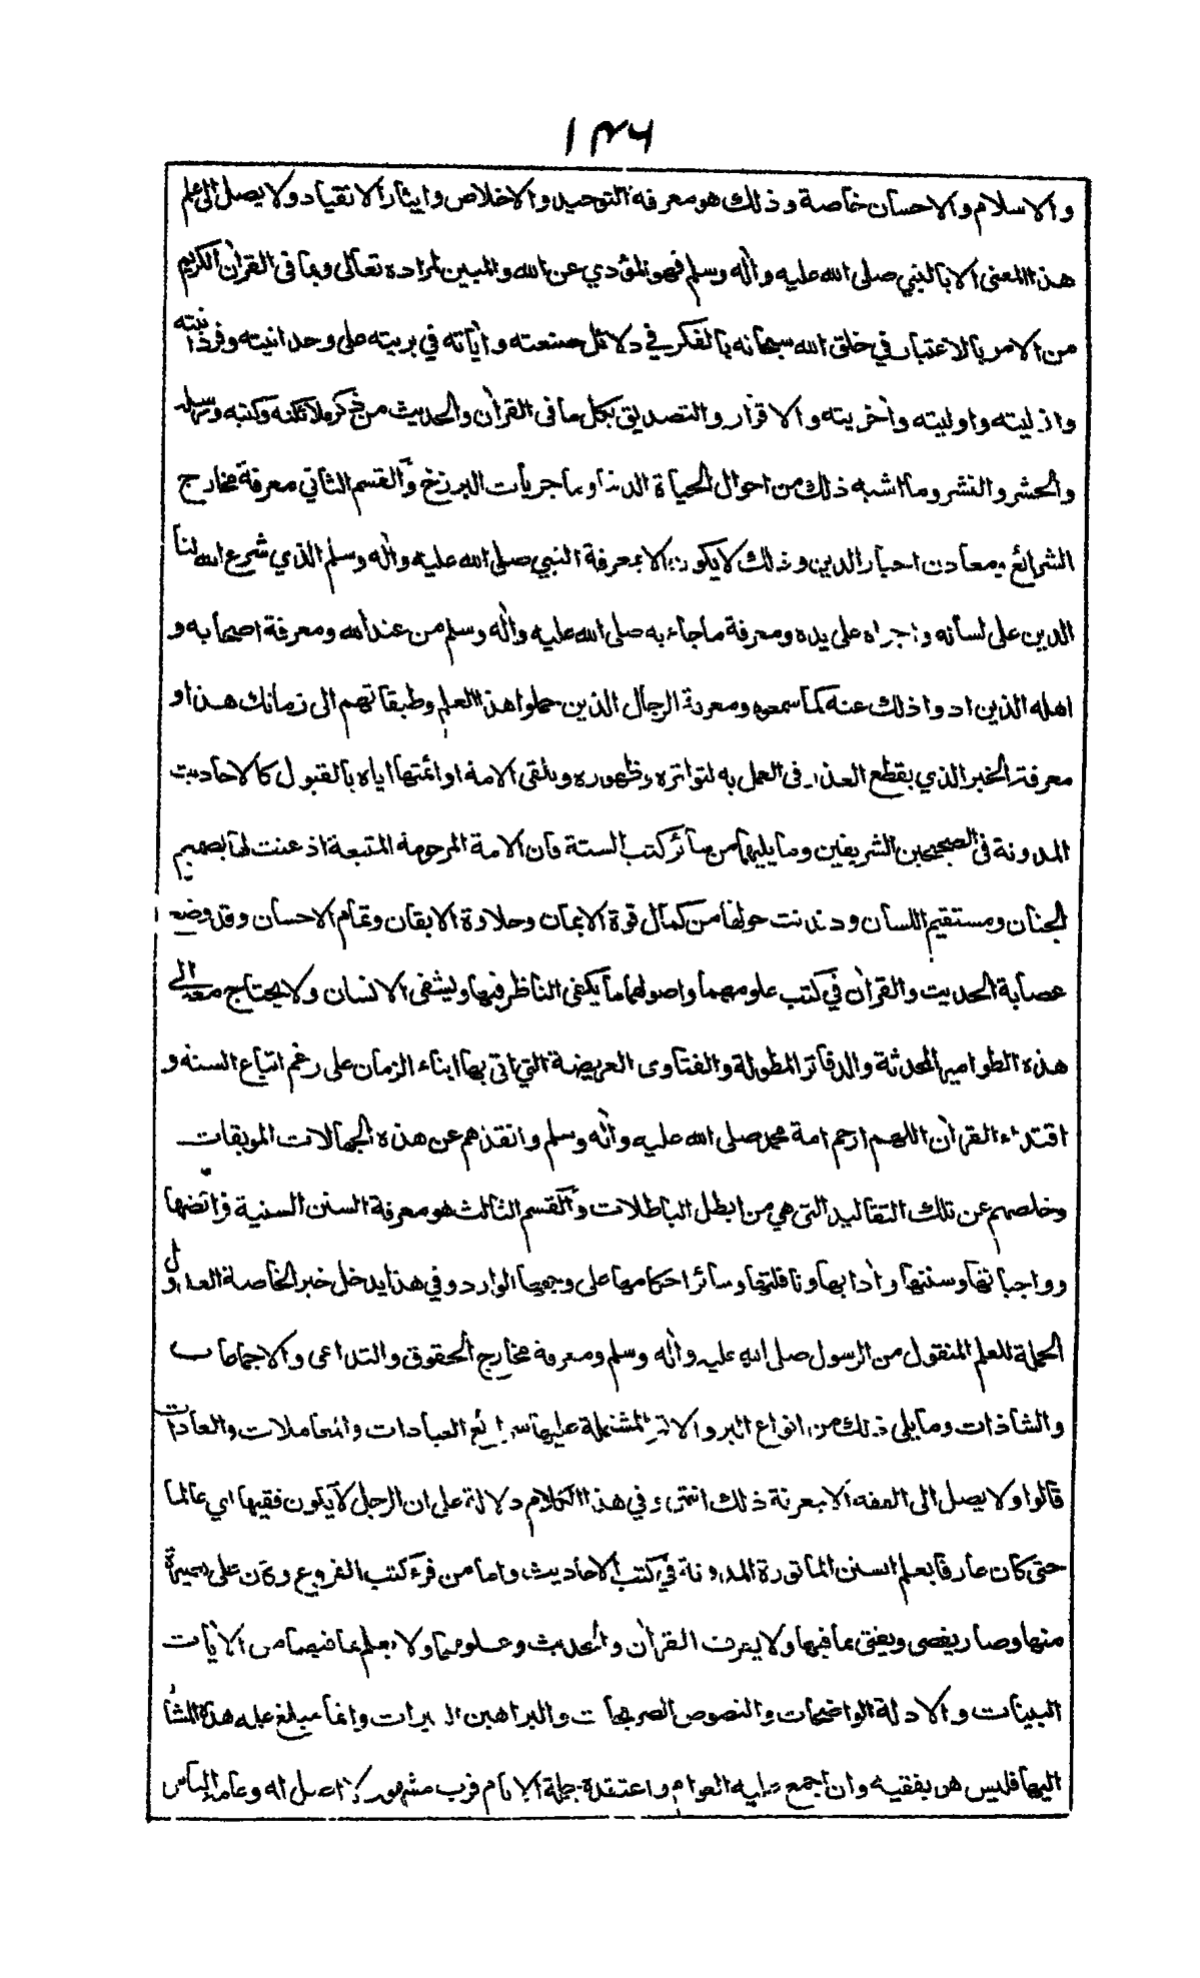 ١٣٦
والاسلام والاحسان خاصة وذلك هو معرفة التوحيد والاخلاص وايثار الانقياد ولا يصل الى علم
هذا المعنى الا بالنبي صلى الله عليه وآله وسلم فهو المؤدي عن الله والمبين لمراده تعالى وبما فى القرآن الكريم
من الامر بالاعتبار في خلق الله سبحانه بالفكر في دلائل صنعته وآياته في بريته على وحدانيته وفردانيته
وازليته واوليته وآخريته والاقرار والتصديق بكل ما فى القرآن والحديث من ذكر ملائكته وكتبه ورسله
والحشر والنشر وما اشبه ذلك من احوال الحياة الدنيا وماجريات البرزخ والقسم الثاني معرفة مخارج
الشرائع ومعادن احبار الدين وذلك لا يكون الا بمعرفة النبي صلى الله عليه وآله وسلم الذي شرع الله لنا
الدين على لسانه واجراه على يده ومعرفة ما جاء به صلى الله عليه وآله وسلم من عند الله ومعرفة اصحابه و
اهله الذين ادوا ذلك عنه كما سمعوه ومعرفة الرجال الذين حملوا هذا العلم وطبقاتهم الى زمانك هذا و
معرفة الخبر الذي يقطع العذر فى العمل به لتواتره وظهوره وتلقى الامة او ائمتها اياه بالقبول كالاحاديث
المدونة فى الصحيحين الشريفين وما يليهما من سائر كتب الستة فان الامة المرحومة المتبعة اذعنت لها بصميم
الجنان ومستقيم اللسان ودندنت حولها من كمال قوة الايمان وحلاوة الايقان وتمام الاحسان وقد وضع
عصابة الحديث والقرآن في كتب علومهما واصولهما ما يكفى الناظر فيها ويشفى الانسان ولا يحتاج معه الى
هذه الطوامير المحدثة والدفاتر المطولة والفتاوى العريضة التي اتى بها ابناء الزمان على رغم اتباع السنة و
اقتداء القرآن اللهم ارحم امة محمد صلى الله عليه وآله وسلم وانقذهم عن هذه الجهالات الموبقات
وخلصهم عن تلك التقاليد التي هي من ابطل الباطلات والقسم الثالث هو معرفة السنن السنية فرائضها
وواجباتها وسننها وآدابها ونافلتها وسائر احكامها على وجهها الوارد وفي هذا يدخل خبر الخاصة العدول
الحملة للعلم المنقول من الرسول صلى الله عليه وآله وسلم ومعرفة مخارج الحقوق والتداعى والاجماعات
والشاذات وما يلى ذلك من انواع البر والاثم المشتملة عليها شرائع العبادات والمعاملات والعادات
قالوا ولا يصل الى الفقه الا بمعرفة ذلك انتهى وفي هذا الكلام دلالة على ان الرجل لا يكون فقيها اي عالما
حتى كان عارفا بعلم السنن الماثورة المدونة في كتب الاحاديث واما من قرء كتب الفروع وكان على بصيرة
منها وصار يقضى ويفتى بما فيها ولا يعرف القرآن والحديث وعلومهما ولا يعلم بما فيهما من الآيات
البينات والادلة الواضحات والنصوص الصريحات والبراهين النيرات وانما مبلغ علمه هذه المشار
اليها فليس هو بفقيه وان اجمع عليه العوام واعتقده جملة الانام فرب مشهور لا اصل له وعامة الناس